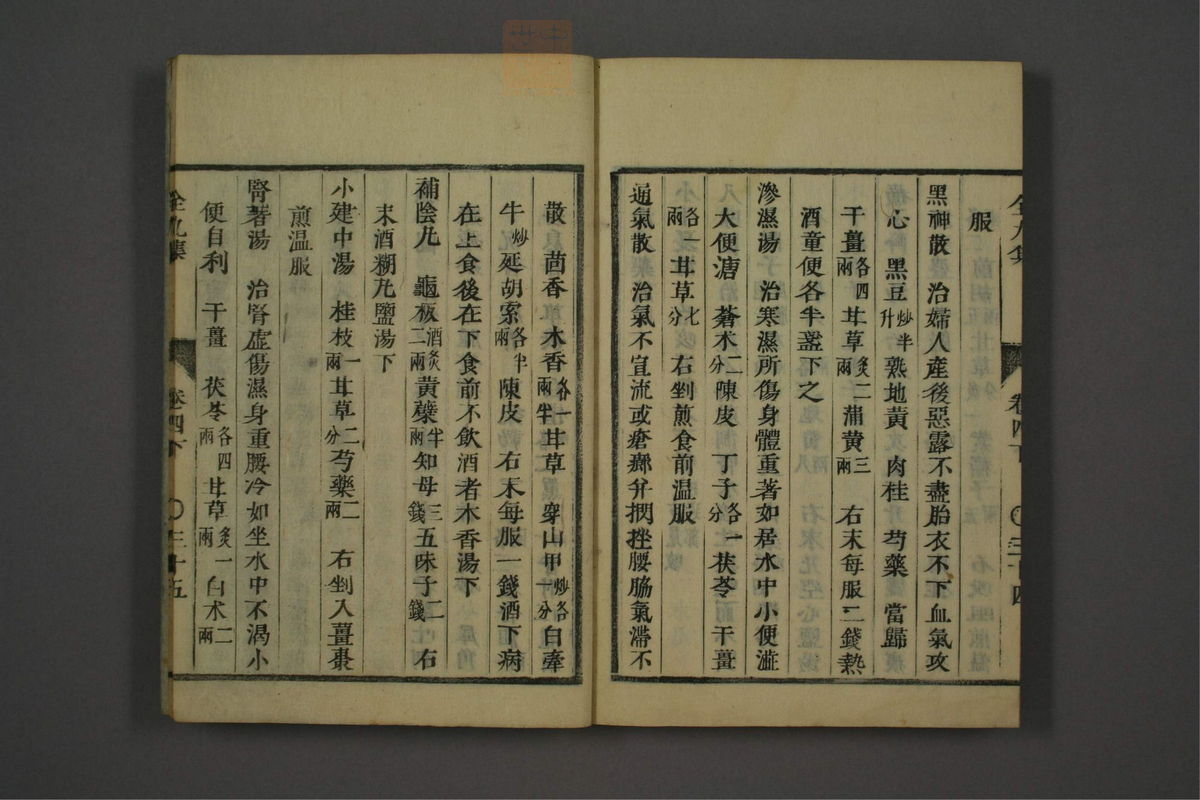 全九集　卷四下　〇三十四
服
黑神散　治婦人産後惡露不盡胎衣不下血氣攻
心　黑豆炒半升熟地黄　肉桂　芍藥　當歸
干薑各四兩　甘草炙二兩蒲黄三兩　右末每服二錢熱
酒童便各半盞下之
滲濕湯　治寒濕所傷身體重著如居水中小便澁
大便溏　蒼朮二分陳皮　丁子各一分　茯苓　干薑
各一兩甘草七分　右剉煎食前温服
通氣散　治氣不宣流或瘡癤并搁挫腰脇氣滯不
散　茴香　木香各一兩半甘草　穿山甲炒各一分白牽
牛炒延胡索各半兩　陳皮　右末每服一錢酒下病
在上食後在下食前不飲酒者木香湯下
補陰丸　龜板酒炙二兩黄蘗半兩知母三錢五味子二錢　右
末酒糊丸鹽湯下
小建中湯　桂枝一兩甘草二分芍藥二兩　右剉入薑棗
煎温服
腎著湯　治腎虚傷濕身重腰冷如坐水中不渴小
便自利　干薑　茯苓各四兩　甘草炙一兩　白朮二兩
全九集　卷四下　〇三十五